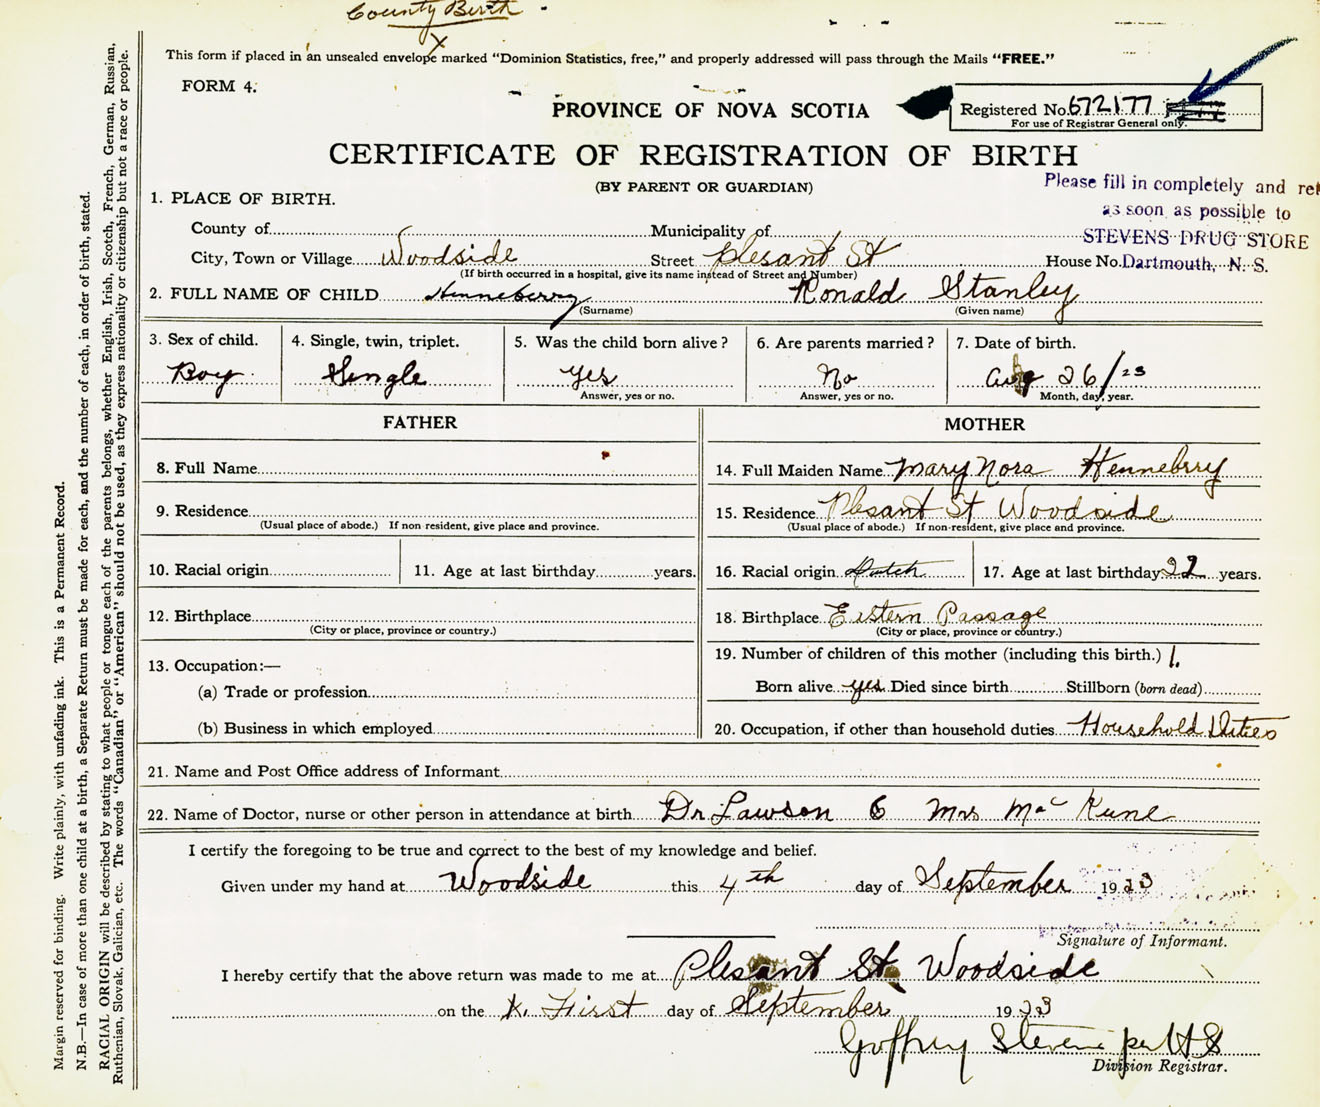 County Birth
X
This form if placed in an unsealed envelope marked "Dominion Statistics, free," and properly addressed will pass through the Mails "FREE."
FORM 4.
PROVINCE OF NOVA SCOTIA
Registered No. 672177
For use of Registrar General only.
CERTIFICATE OF REGISTRATION OF BIRTH
(BY PARENT OR GUARDIAN)
Please fill in completely and ret
as soon as possible to
STEVENS DRUG STORE
Dartmouth, N. S.
1. PLACE OF BIRTH.
County of Municipality of
City, Town or Village Woodside Street Plesant St House No.
(If birth occurred in a hospital, give its name instead of Street and Number)
2. FULL NAME OF CHILD Henneberry Ronald Stanley
(Surname) (Given name)
3. Sex of child. 4. Single, twin, triplet. 5. Was the child born alive? 6. Are parents married? 7. Date of birth.
Boy Single yes No Aug 26/23
Answer, yes or no. Answer, yes or no. Month, day, year.
FATHER MOTHER
8. Full Name 14. Full Maiden Name Mary Nora Henneberry
9. Residence 15. Residence Plesant St Woodside
(Usual place of abode.) If non-resident, give place and province. (Usual place of abode.) If non-resident, give place and province.
10. Racial origin 11. Age at last birthday years. 16. Racial origin Dutch 17. Age at last birthday 22 years.
12. Birthplace 18. Birthplace Eistern Passage
(City or place, province or country.) (City or place, province or country.)
13. Occupation:— 19. Number of children of this mother (including this birth.) 1.
(a) Trade or profession Born alive yes Died since birth Stillborn (born dead)
(b) Business in which employed 20. Occupation, if other than household duties Household Duties
21. Name and Post Office address of Informant
22. Name of Doctor, nurse or other person in attendance at birth Dr Lawson & Mrs Mac Kune
I certify the foregoing to be true and correct to the best of my knowledge and belief.
Given under my hand at Woodside this 4th day of September 1923
Signature of Informant.
I hereby certify that the above return was made to me at Plesant St Woodside
on the First day of September 1923
Goffrey Stevens per HS
Division Registrar.
Margin reserved for binding. Write plainly, with unfading ink. This is a Permanent Record.
N.B.—In case of more than one child at a birth, a Separate Return must be made for each, and the number of each, in order of birth, stated.
RACIAL ORIGIN will be described by stating to what people or tongue each of the parents belongs, whether English, Irish, Scotch, French, German, Russian,
Ruthenian, Slovak, Galician, etc. The words "Canadian" or "American" should not be used, as they express nationality or citizenship but not a race or people.